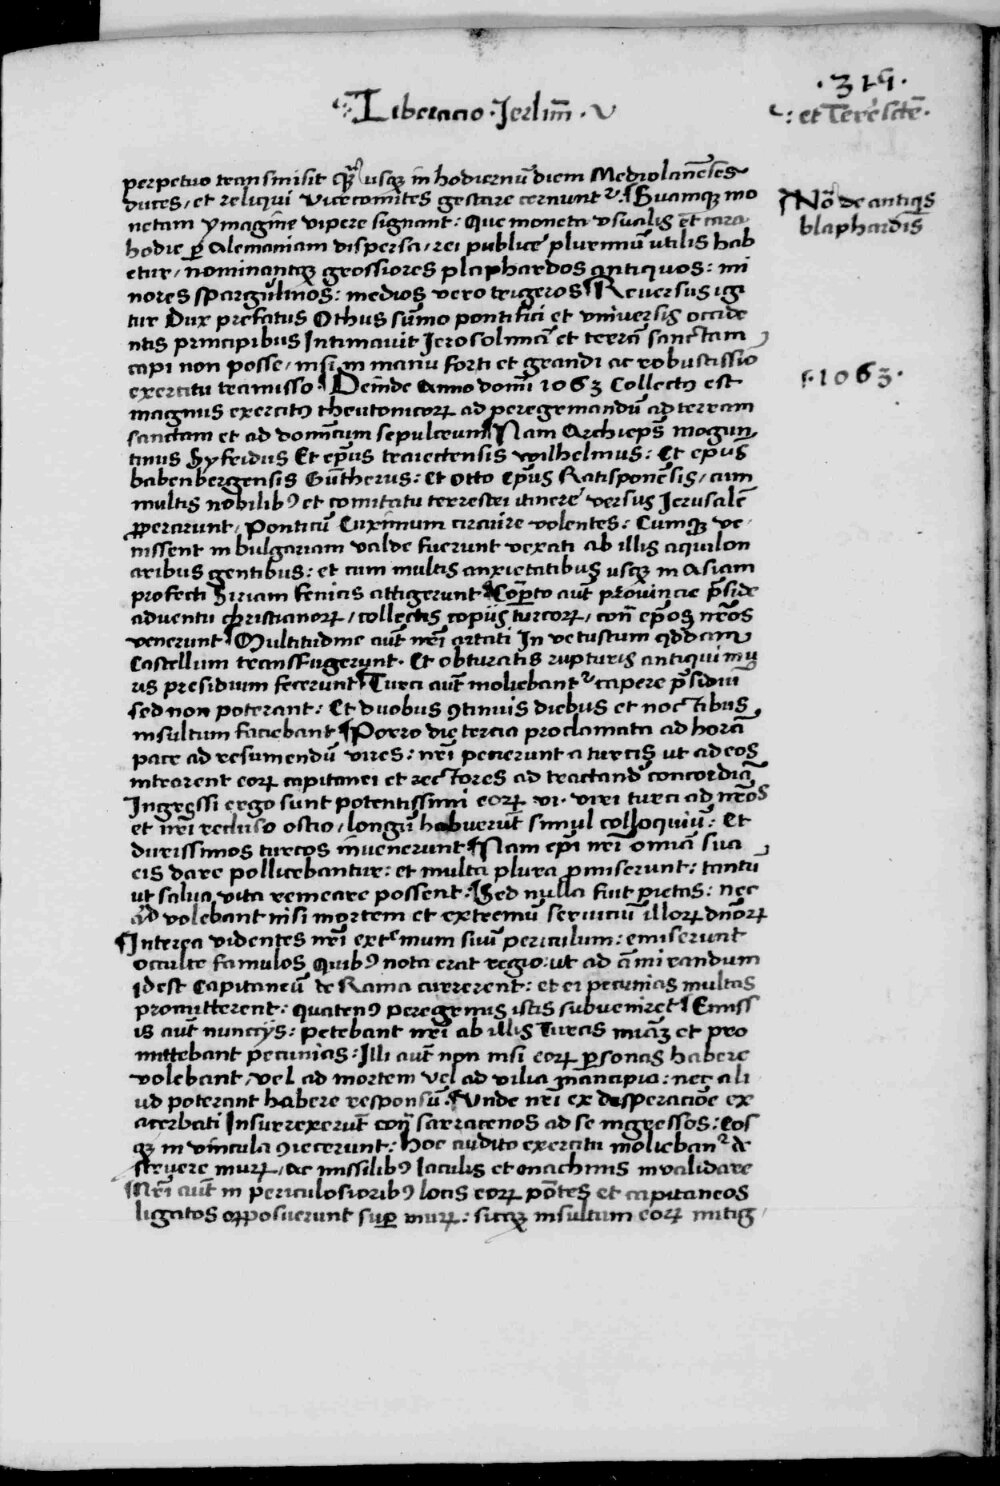 Liberacio · Jerlim̄ · V
· 315 ·
: et Terre scte ·
perpetuo transmisit usq in hodiernū diem Mediolanēses
duces, et reliqui vicecomites gestare cernunt. Suamq mo
netam ymagine vipere signant: Que moneta usualis
hodie p Alemaniam dispersa, rei publice plurimū utilis hab
etur, nominantq grossiores plaphardos antiquos: mi
nores spargulinos: medios vero trigeros Reversus igi
tur Dux prefatus Othus sūmo pontifici et universis occide
ntis principibus Intimavit Jerosolimā et terrā sanctam
capi non posse, nisi in manu forti et grandi ac robustissio
exercitu tramisso. Deinde Anno domī 1063 Collectꝰ est
magnus exercitꝰ theutonicoꝝ ad peregrinandū ad terram
sanctam et ad domīcum sepulcrum Nam Archiepūs mogun
tinus Syfridus Et epūs traiectensis wilhelmus: Et epus
babenbergensis Gūtherus: Et Otto Epūs Ratisponēsis, cum
multis nobilibꝰ et comitatu terrestri itinere versus Jerusalē
pperarunt, Ponticū Euxinum circuire volentes: Cumq ve
nissent in bulgariam valde fuerunt vexati ab illis aquilon
aribus gentibus: et cum multis anxietatibus usq in Asiam
profecti Siriam fenicis attigerunt Copto aūt provincie pside
adventu christianoꝝ, collectis copiis turcoꝝ, con epos nros
venerunt Multitudine aūt nrī artati In vetustum qddam
Castellum transfugerunt. Et obturatis rupturis antiqui mu
ris presidium fecerunt Turci aūt moliebant capere psidiū
sed non poterant: Et duobus ꝯtinuis diebus et noctibus
insultum faciebant Porro die tercia proclamata ad horā
pace ad resumendū vires: nrī pecierunt a turcis ut ad eos
intrarent eoꝝ capitanei et rectores ad tractand concordiā
Ingressi ergo sunt potentissimi eoꝝ vi. viri turci ad nros
et nrī recluso ostio, longū habuerūt simul colloquiū: Et
durissimos turcos invenerunt Nam epī nrī omīa sua
eis dare pollicebantur: et multa plura pmiserunt: tantū
ut salva vita remeare possent. Sed nulla fuit pietas: nec
ad volebant nisi mortem et extremū serviciū illoꝝ dnoꝝ
Interea videntes nrī extremum suū periculum: emiserunt
occulte famulos Quibꝰ nota erat regio: ut ad āmirandum
idest Capitaneū de Rama currerent: et ei pecunias multas
promitterent: quatenꝰ peregrinis istis subveniret Emiss
is aūt nuncijs: petebant nrī ab illis Turcis et pro
mittebant pecunias: Illi aūt non nisi eoꝝ psonas habere
volebant, vel ad mortem vel ad vilia mancipia: nec ali
ud poterant habere responsū. Unde nrī ex desperacioe ex
acerbati Insurrexerūt con sarracenos ad se ingressos: Eos
q in vincula ꝯiecerunt: Hoc audito exercitu molieban de
struere muꝝ, ac missilibꝰ Iaculis et machinis invalidare
Nrī aūt in periculosioribꝰ locis eoꝝ potes et capitaneos
ligatos opposuerunt sup muꝝ: sicq insultum eoꝝ mitig
No de antiqis
blaphardis
· 1063 ·